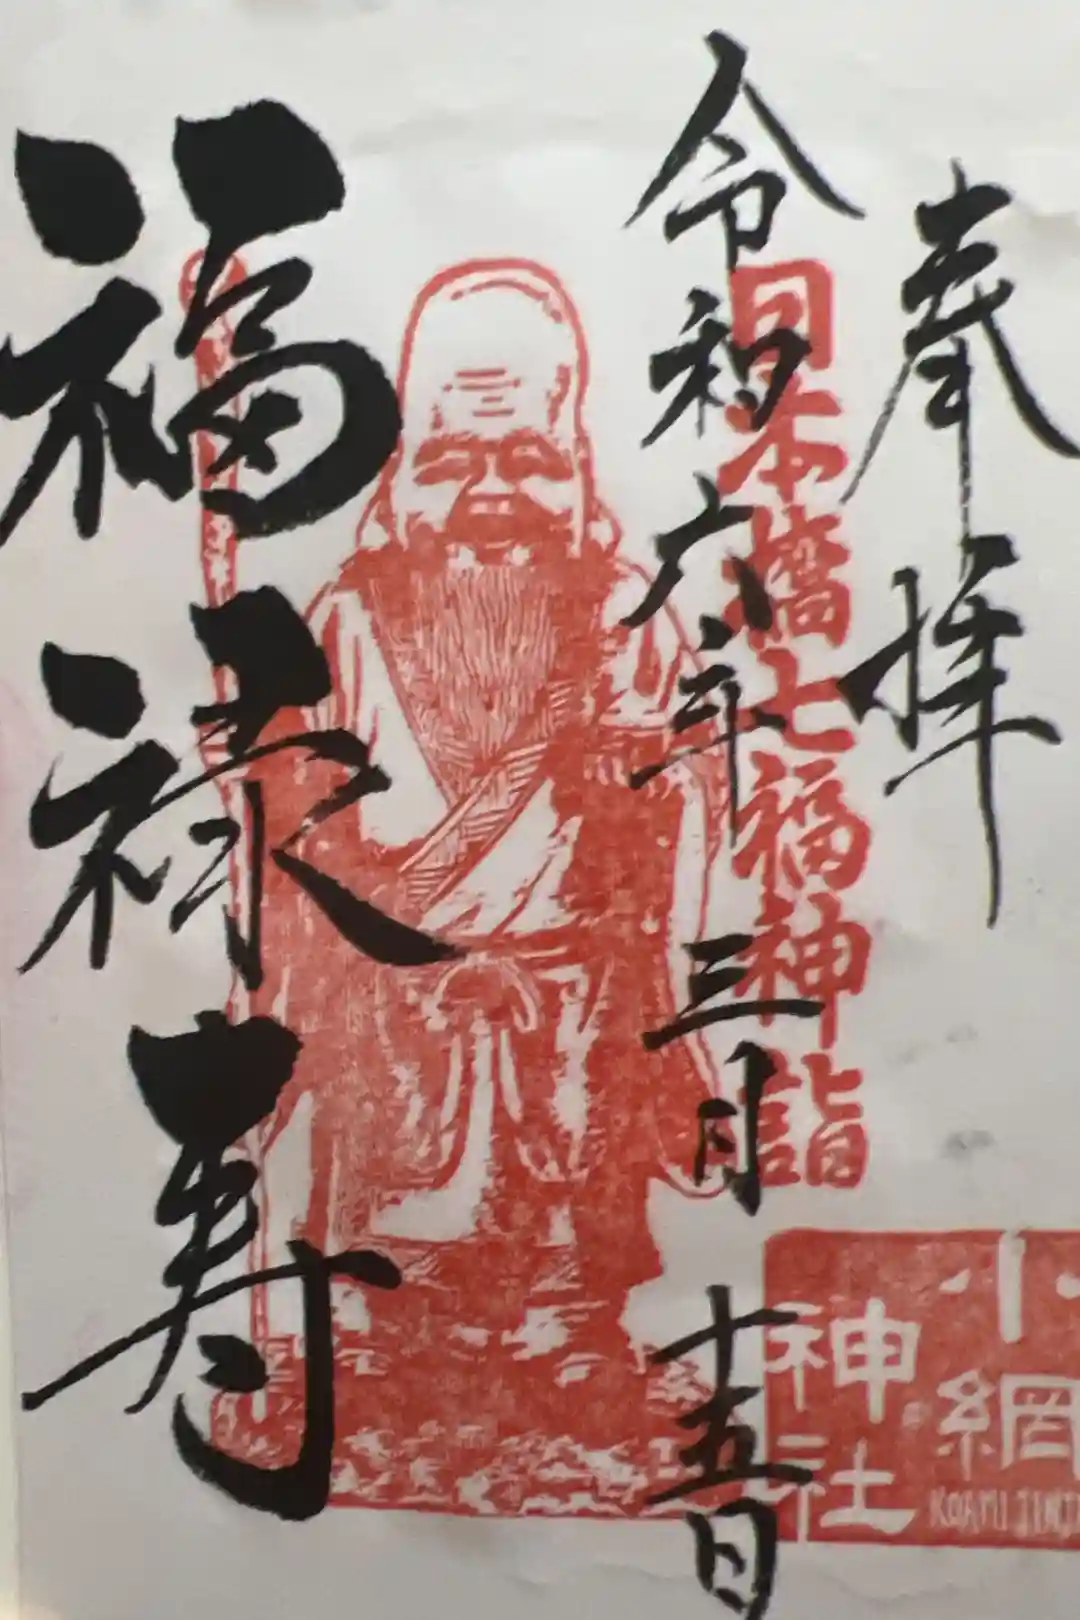 奉拝
日本橋七福神詣
令和六年三月十五日
福禄寿
小網
神社
KOAMI JINJ